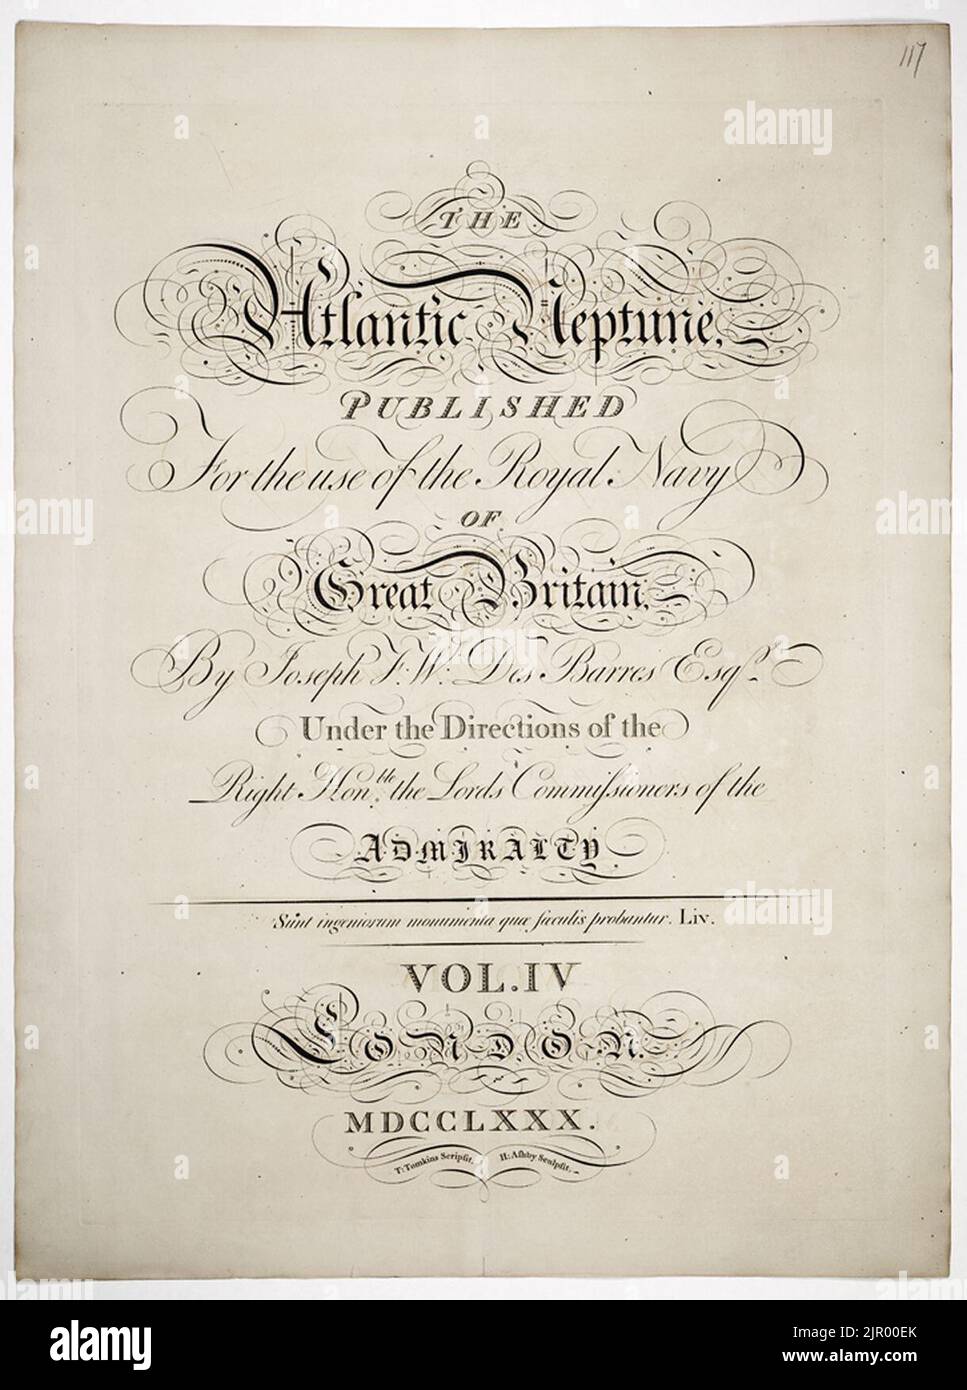 117
THE
Atlantic Neptune,
PUBLISHED
For the use of the Royal Navy
OF
Great Britain,
By Joseph F. W. Des Barres Esqr.
Under the Directions of the
Right Honble. the Lords Commiſsioners of the
ADMIRALTY.
Sunt ingeniorum monumenta quæ ſæculis probantur. Liv.
VOL. IV
LONDON.
MDCCLXXX.
T: Tomkins Scripſit. H: Aſhby Sculpſit.
alamy
Image ID: 2JR00EK
www.alamy.com